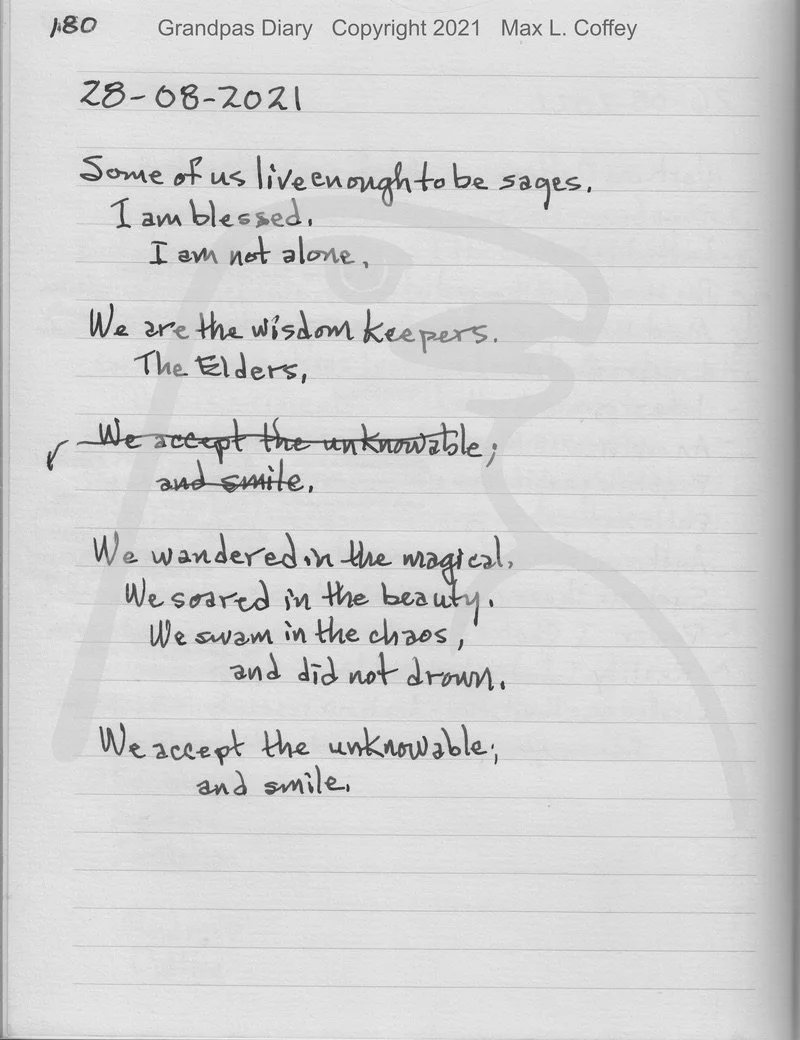 180 Grandpas Diary Copyright 2021 Max L. Coffey
28-08-2021
Some of us live enough to be sages.
I am blessed.
I am not alone.
We are the wisdom keepers.
The Elders,
We accept the unknowable;
and smile.
We wandered in the magical.
We soared in the beauty.
We swam in the chaos,
and did not drown.
We accept the unknowable;
and smile.